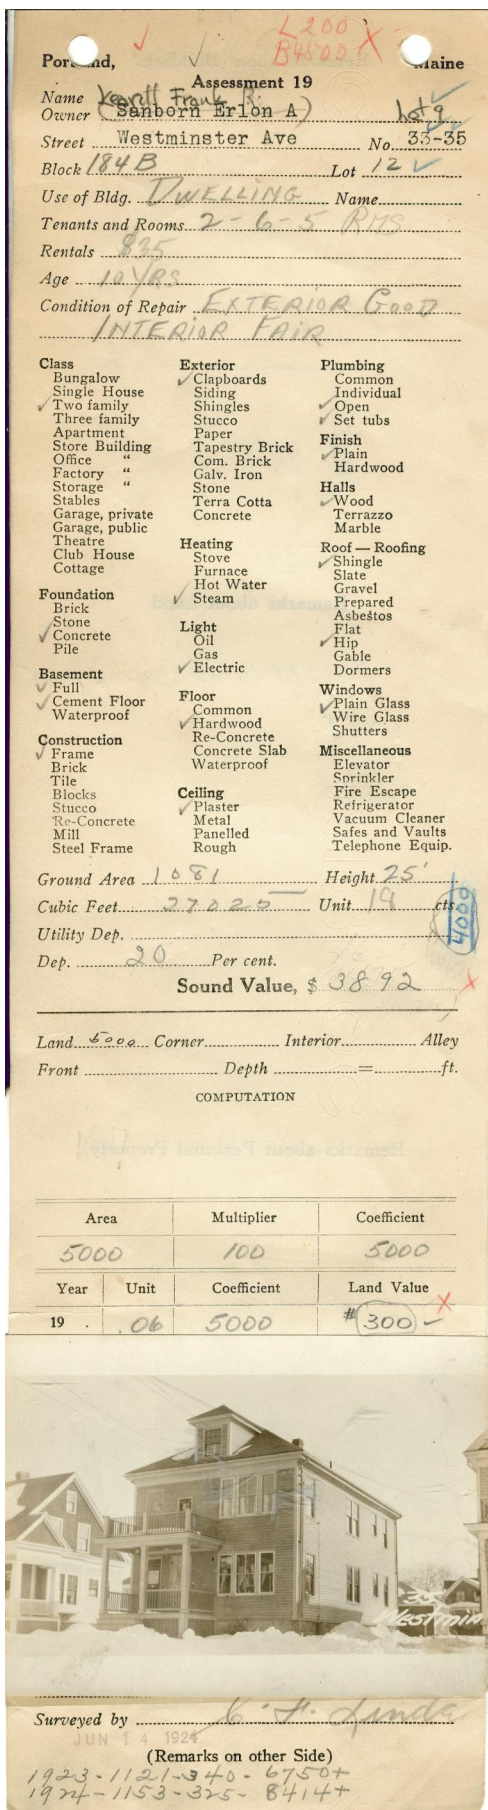 L 200
B 4500 X
Portland, Maine
Assessment 19
Name Frank R.
Owner (Sanborn Erlon A) Lot 9
Street Westminster Ave No. 33-35
Block 184B Lot 12
Use of Bldg. DWELLING Name
Tenants and Rooms 2-6-5 RMS
Rentals $35
Age 10 YRS
Condition of Repair EXTERIOR GOOD
INTERIOR FAIR
Class
Bungalow
Single House
✓ Two family
Three family
Apartment
Store Building
Office "
Factory "
Storage "
Stables
Garage, private
Garage, public
Theatre
Club House
Cottage
Foundation
Brick
Stone
✓ Concrete
Pile
Basement
✓ Full
✓ Cement Floor
Waterproof
Construction
✓ Frame
Brick
Tile
Blocks
Stucco
Re-Concrete
Mill
Steel Frame
Exterior
✓ Clapboards
Siding
Shingles
Stucco
Paper
Tapestry Brick
Com. Brick
Galv. Iron
Stone
Terra Cotta
Concrete
Heating
Stove
Furnace
Hot Water
✓ Steam
Light
Oil
Gas
✓ Electric
Floor
Common
✓ Hardwood
Re-Concrete
Concrete Slab
Waterproof
Ceiling
✓ Plaster
Metal
Panelled
Rough
Plumbing
Common
Individual
✓ Open
✓ Set tubs
Finish
✓ Plain
Hardwood
Halls
✓ Wood
Terrazzo
Marble
Roof — Roofing
✓ Shingle
Slate
Gravel
Prepared
Asbestos
Flat
✓ Hip
Gable
Dormers
Windows
✓ Plain Glass
Wire Glass
Shutters
Miscellaneous
Elevator
Sprinkler
Fire Escape
Refrigerator
Vacuum Cleaner
Safes and Vaults
Telephone Equip.
Ground Area 1081 Height 25'
Cubic Feet 27025 Unit 18 cts.
4000
Utility Dep.
Dep. 20 Per cent.
Sound Value, $ 3892 X
Land 5000 Corner Interior Alley
Front Depth = ft.
COMPUTATION
Remarks about Personal Property
Area Multiplier Coefficient
5000 100 5000
Year Unit Coefficient Land Value
19 . .06 5000 $300 X
35
Westmin
Surveyed by
JUN 14 1924
(Remarks on other Side)
1923-1121-340-6750+
1924-1153-325-8414+